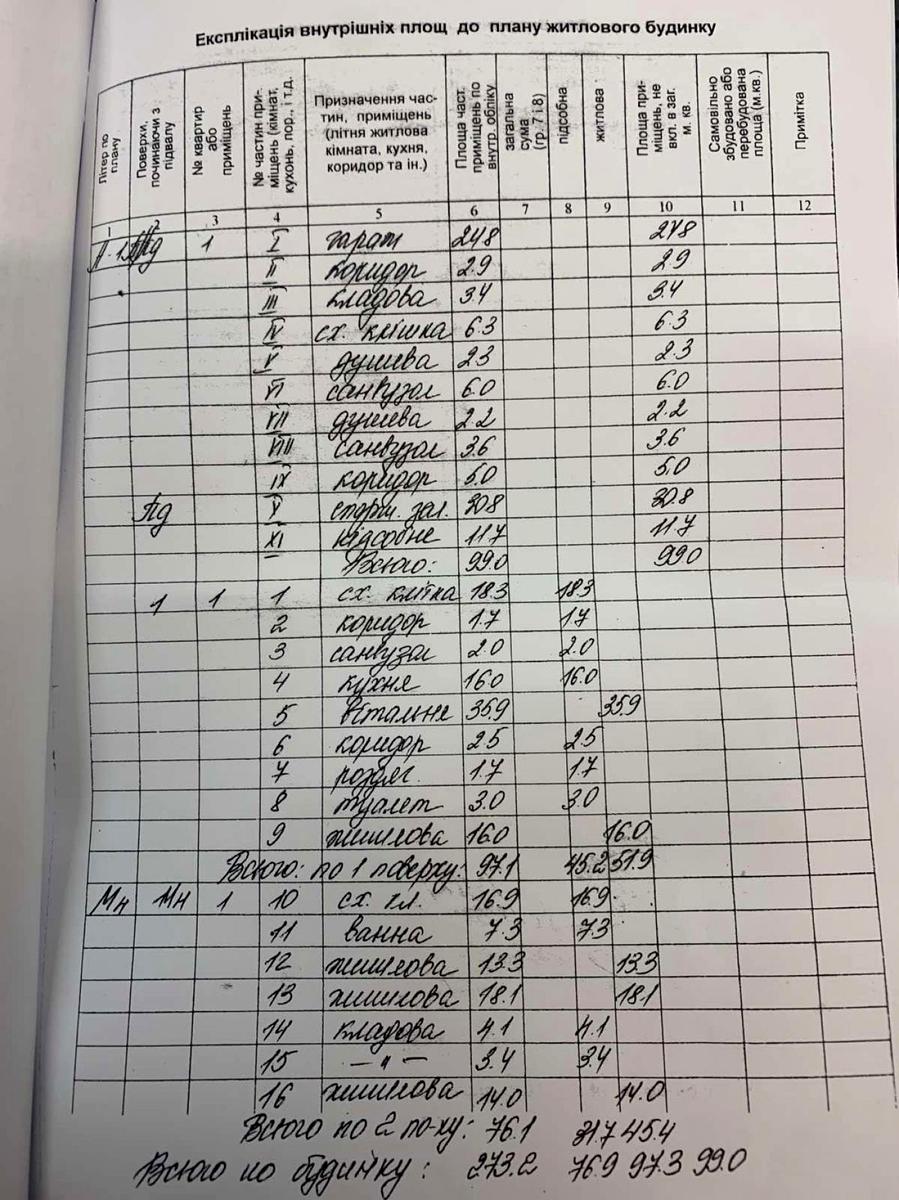 Експлікація внутрішніх площ до плану житлового будинку
Літер по плану | Поверхи, починаючи з підвалу | № квартир або приміщень | № частин приміщень (кімнат, кухонь, кор., і т.д. | Призначення частин, приміщень (літня житлова кімната, кухня, коридор та ін.) | Площа част. приміщень по внутр. обліку | загальна сума (гр. 7 і 8) | підсобна | житлова | Площа приміщень, не вкл. в заг. м. кв. | Самовільно збудовано або перебудована площа (м.кв.) | Примітка
1 2 3 4 5 6 7 8 9 10 11 12
Пд 1 I гараж 24.8 24.8
II коридор 2.9 2.9
III кладова 3.4 3.4
IV сх. клішка 6.3 6.3
V душева 2.3 2.3
VI санвузол 6.0 6.0
VII душева 2.2 2.2
VIII санвузол 3.6 3.6
IX коридор 5.0 5.0
Пд X спорт. зал. 30.8 30.8
XI підсобне 11.7 11.7
Всього: 99.0 99.0
1 1 1 сх. клітка 18.3 18.3
2 коридор 1.7 1.7
3 санвузол 2.0 2.0
4 кухня 16.0 16.0
5 вітальня 35.9 35.9
6 коридор 2.5 2.5
7 роздяг. 1.7 1.7
8 туалет 3.0 3.0
9 житлова 16.0 16.0
Всього: по 1 поверху: 97.1 45.2 51.9
Мн Мн 1 10 сх. кл. 16.9 16.9
11 ванна 7.3 7.3
12 житлова 13.3 13.3
13 житлова 18.1 18.1
14 кладова 4.1 4.1
15 — " — 3.4 3.4
16 житлова 14.0 14.0
Всього по 2 по-ху: 76.1 31.7 45.4
Всього по будинку: 273.2 76.9 97.3 99.0